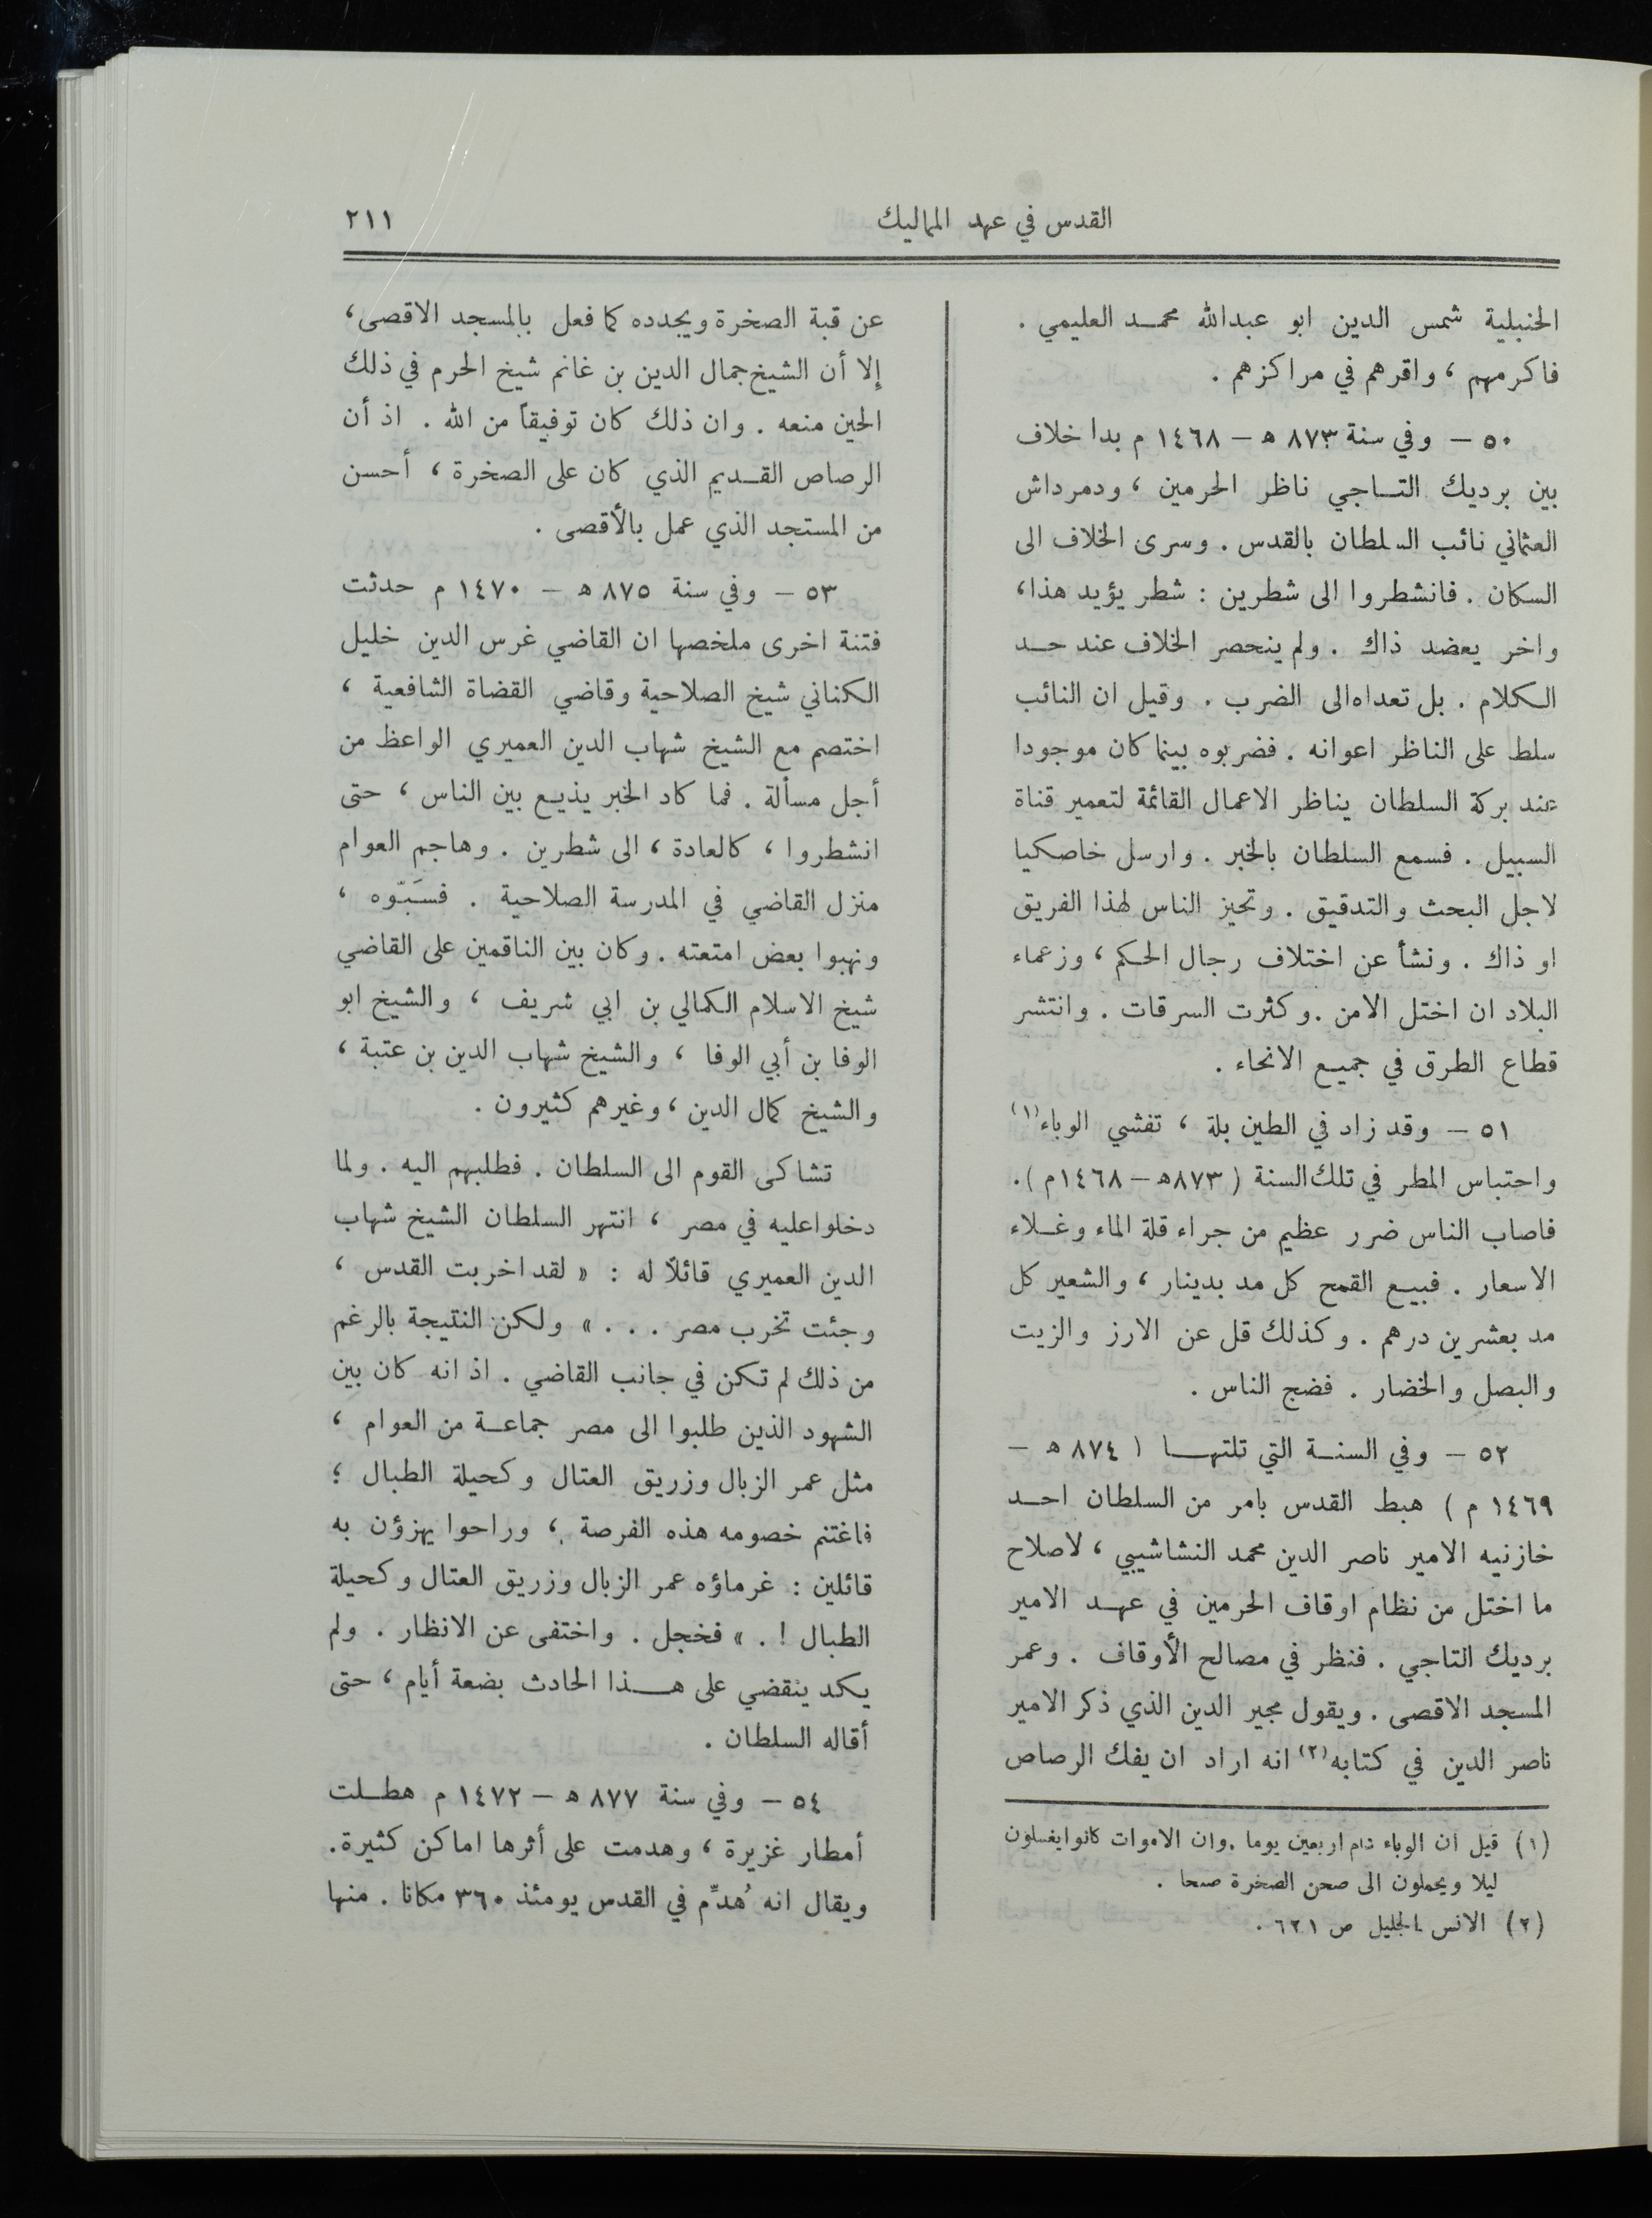 القدس في عهد المماليك
٢١١
الحنبلية شمس الدين ابو عبدالله محمد العليمي .
فاكرمهم ، واقرهم في مراكزهم .
٥٠ – وفي سنة ٨٧٣ ه – ١٤٦٨ م بدا خلاف
بين برديك التاجي ناظر الحرمين ، ودمرداش
العثماني نائب السلطان بالقدس . وسرى الخلاف الى
السكان . فانشطروا الى شطرين : شطر يؤيد هذا،
واخر يعضد ذاك . ولم ينحصر الخلاف عند حد
الكلام . بل تعداه الى الضرب . وقيل ان النائب
سلط على الناظر اعوانه . فضربوه بينما كان موجودا
عند بركة السلطان يناظر الاعمال القائمة لتعمير قناة
السبيل . فسمع السلطان بالخبر . وارسل خاصكيا
لاجل البحث والتدقيق . وتحيز الناس لهذا الفريق
او ذاك . ونشأ عن اختلاف رجال الحكم ، وزعماء
البلاد ان اختل الامن . وكثرت السرقات . وانتشر
قطاع الطرق في جميع الانحاء .
٥١ – وقد زاد في الطين بلة ، تفشي الوباء (١)
واحتباس المطر في تلك السنة ( ٨٧٣ه – ١٤٦٨م ).
فاصاب الناس ضرر عظيم من جراء قلة الماء وغلاء
الاسعار . فبيع القمح كل مد بدينار ، والشعير كل
مد بعشرين درهم . وكذلك قل عن الارز والزيت
والبصل والخضار . فضج الناس .
٥٢ – وفي السنة التي تلتها ( ٨٧٤ ه –
١٤٦٩ م ) هبط القدس بامر من السلطان احد
خازنيه الامير ناصر الدين محمد النشاشيبي ، لاصلاح
ما اختل من نظام اوقاف الحرمين في عهد الامير
برديك التاجي . فنظر في مصالح الأوقاف . وعمر
المسجد الاقصى . ويقول مجير الدين الذي ذكر الامير
ناصر الدين في كتابه (٢) انه اراد ان يفك الرصاص
(١) قيل ان الوباء دام اربعين يوما . وان الاموات كانوا يغسلون
ليلا ويحملون الى صحن الصخرة صبحا .
(٢) الانس الجليل ص ٦٢١ .
عن قبة الصخرة ويجدده كما فعل بالمسجد الاقصى،
إلا أن الشيخ جمال الدين بن غانم شيخ الحرم في ذلك
الحين منعه . وان ذلك كان توفيقاً من الله . اذ أن
الرصاص القديم الذي كان على الصخرة ، أحسن
من المستجد الذي عمل بالأقصى .
٥٣ – وفي سنة ٨٧٥ ه – ١٤٧٠ م حدثت
فتنة اخرى ملخصها ان القاضي غرس الدين خليل
الكناني شيخ الصلاحية وقاضي القضاة الشافعية ،
اختصم مع الشيخ شهاب الدين العميري الواعظ من
أجل مسألة . فما كاد الخبر يذيع بين الناس ، حتى
انشطروا ، كالعادة ، الى شطرين . وهاجم العوام
منزل القاضي في المدرسة الصلاحية . فسَبّوه ،
ونهبوا بعض امتعته . وكان بين الناقمين على القاضي
شيخ الاسلام الكمالي بن ابي شريف ، والشيخ ابو
الوفا بن أبي الوفا ، والشيخ شهاب الدين بن عتبة ،
والشيخ كمال الدين ، وغيرهم كثيرون .
تشاكى القوم الى السلطان . فطلبهم اليه . ولما
دخلوا عليه في مصر ، انتهر السلطان الشيخ شهاب
الدين العميري قائلاً له : « لقد اخربت القدس ،
وجئت تخرب مصر . . . » ولكن النتيجة بالرغم
من ذلك لم تكن في جانب القاضي . اذ انه كان بين
الشهود الذين طلبوا الى مصر جماعة من العوام ،
مثل عمر الزبال وزريق العتال وكحيلة الطبال ؛
فاغتنم خصومه هذه الفرصة ، وراحوا يهزؤن به
قائلين : غرماؤه عمر الزبال وزريق العتال وكحيلة
الطبال ! . » فخجل . واختفى عن الانظار . ولم
يكد ينقضي على هذا الحادث بضعة أيام ، حتى
أقاله السلطان .
٥٤ – وفي سنة ٨٧٧ ه – ١٤٧٢ م هطلت
أمطار غزيرة ، وهدمت على أثرها اماكن كثيرة.
ويقال انه هُدِّم في القدس يومئذ ٣٦٠ مكانا . منها